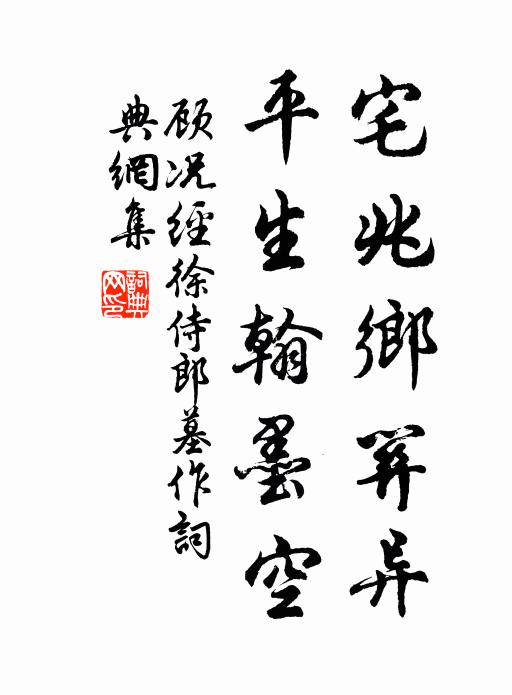 宅兆鄉關异
平生翰墨空
顾况經徐侍郎墓作詞
典網集
詞典
网印